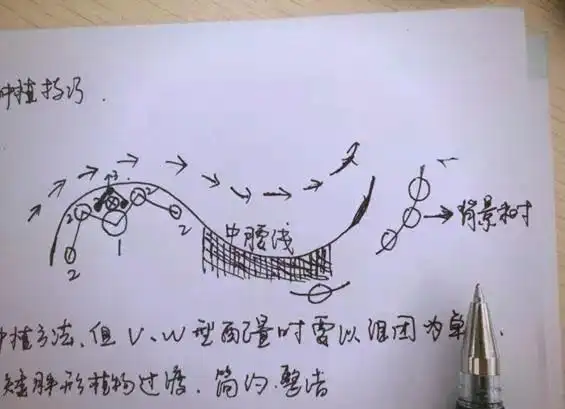 种植技巧.
3
2 2 2 2
1
2
中腰线
背景树
种植方法、但V、W型配置时需以组团为单
矮胖形植物过渡.简约.整洁